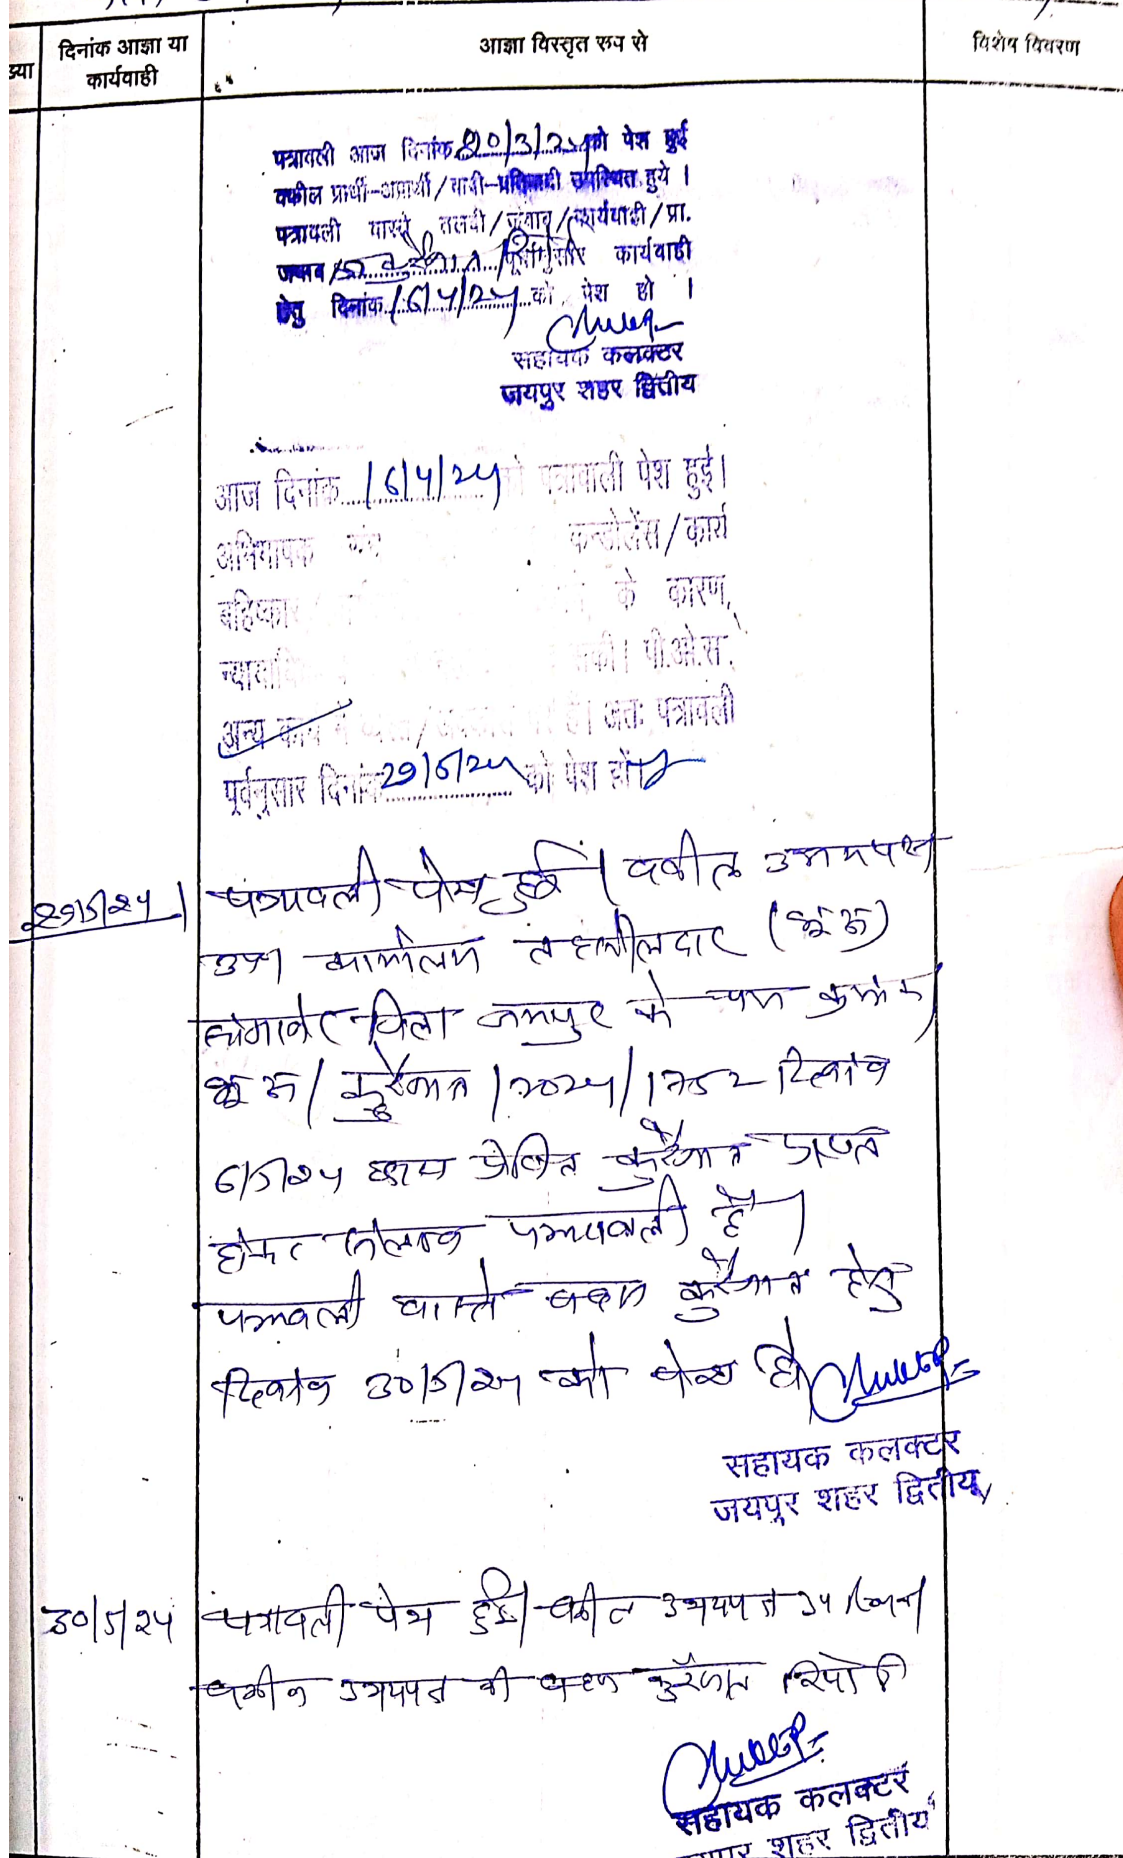 दिनांक आज्ञा या
कार्यवाही
आज्ञा विस्तृत रूप से
विशेष विवरण
पत्रावली आज दिनांक 20/3/24 को पेश हुई
वकील प्रार्थी-अप्रार्थी/वादी-प्रतिवादी उपस्थित हुये ।
पत्रावली वास्ते तलबी/जवाब/कार्यवाही/प्रा.
जवाब/ कुर्रेजात /पूर्वानुसार कार्यवाही
हेतु दिनांक 16/4/24 को पेश हो ।
सहायक कलक्टर
जयपुर शहर द्वितीय
आज दिनांक 16/4/24 को पत्रावली पेश हुई।
अभिभाषक कन्डोलेंस/कार्य
बहिष्कार के कारण,
सकी। पी.ओ.स.
अन्य कार्य में अतः पत्रावली
पूर्वनुसार दिनांक 29/5/24 को पेश हों।
29/5/24
पत्रावली पेश हुई। वकील उभयपक्ष
उप। कार्यालय तहसीलदार (भू.रू)
सांगानेर जिला जयपुर के पत्र क्रमांक
भू.रू/कुर्रेजात/2024/1752 दिनांक
6/5/24 द्वारा प्रेषित कुर्रेजात प्राप्त
होकर संलग्न पत्रावली है।
पत्रावली वास्ते बहस कुर्रेजात हेतु
दिनांक 30/5/24 को पेश हो
सहायक कलक्टर
जयपुर शहर द्वितीय
30/5/24
पत्रावली पेश हुई। वकील उभयपक्ष उपस्थित।
वकील उभयपक्ष की बहस कुर्रेजात रिपोर्ट
सहायक कलक्टर
शहर द्वितीय